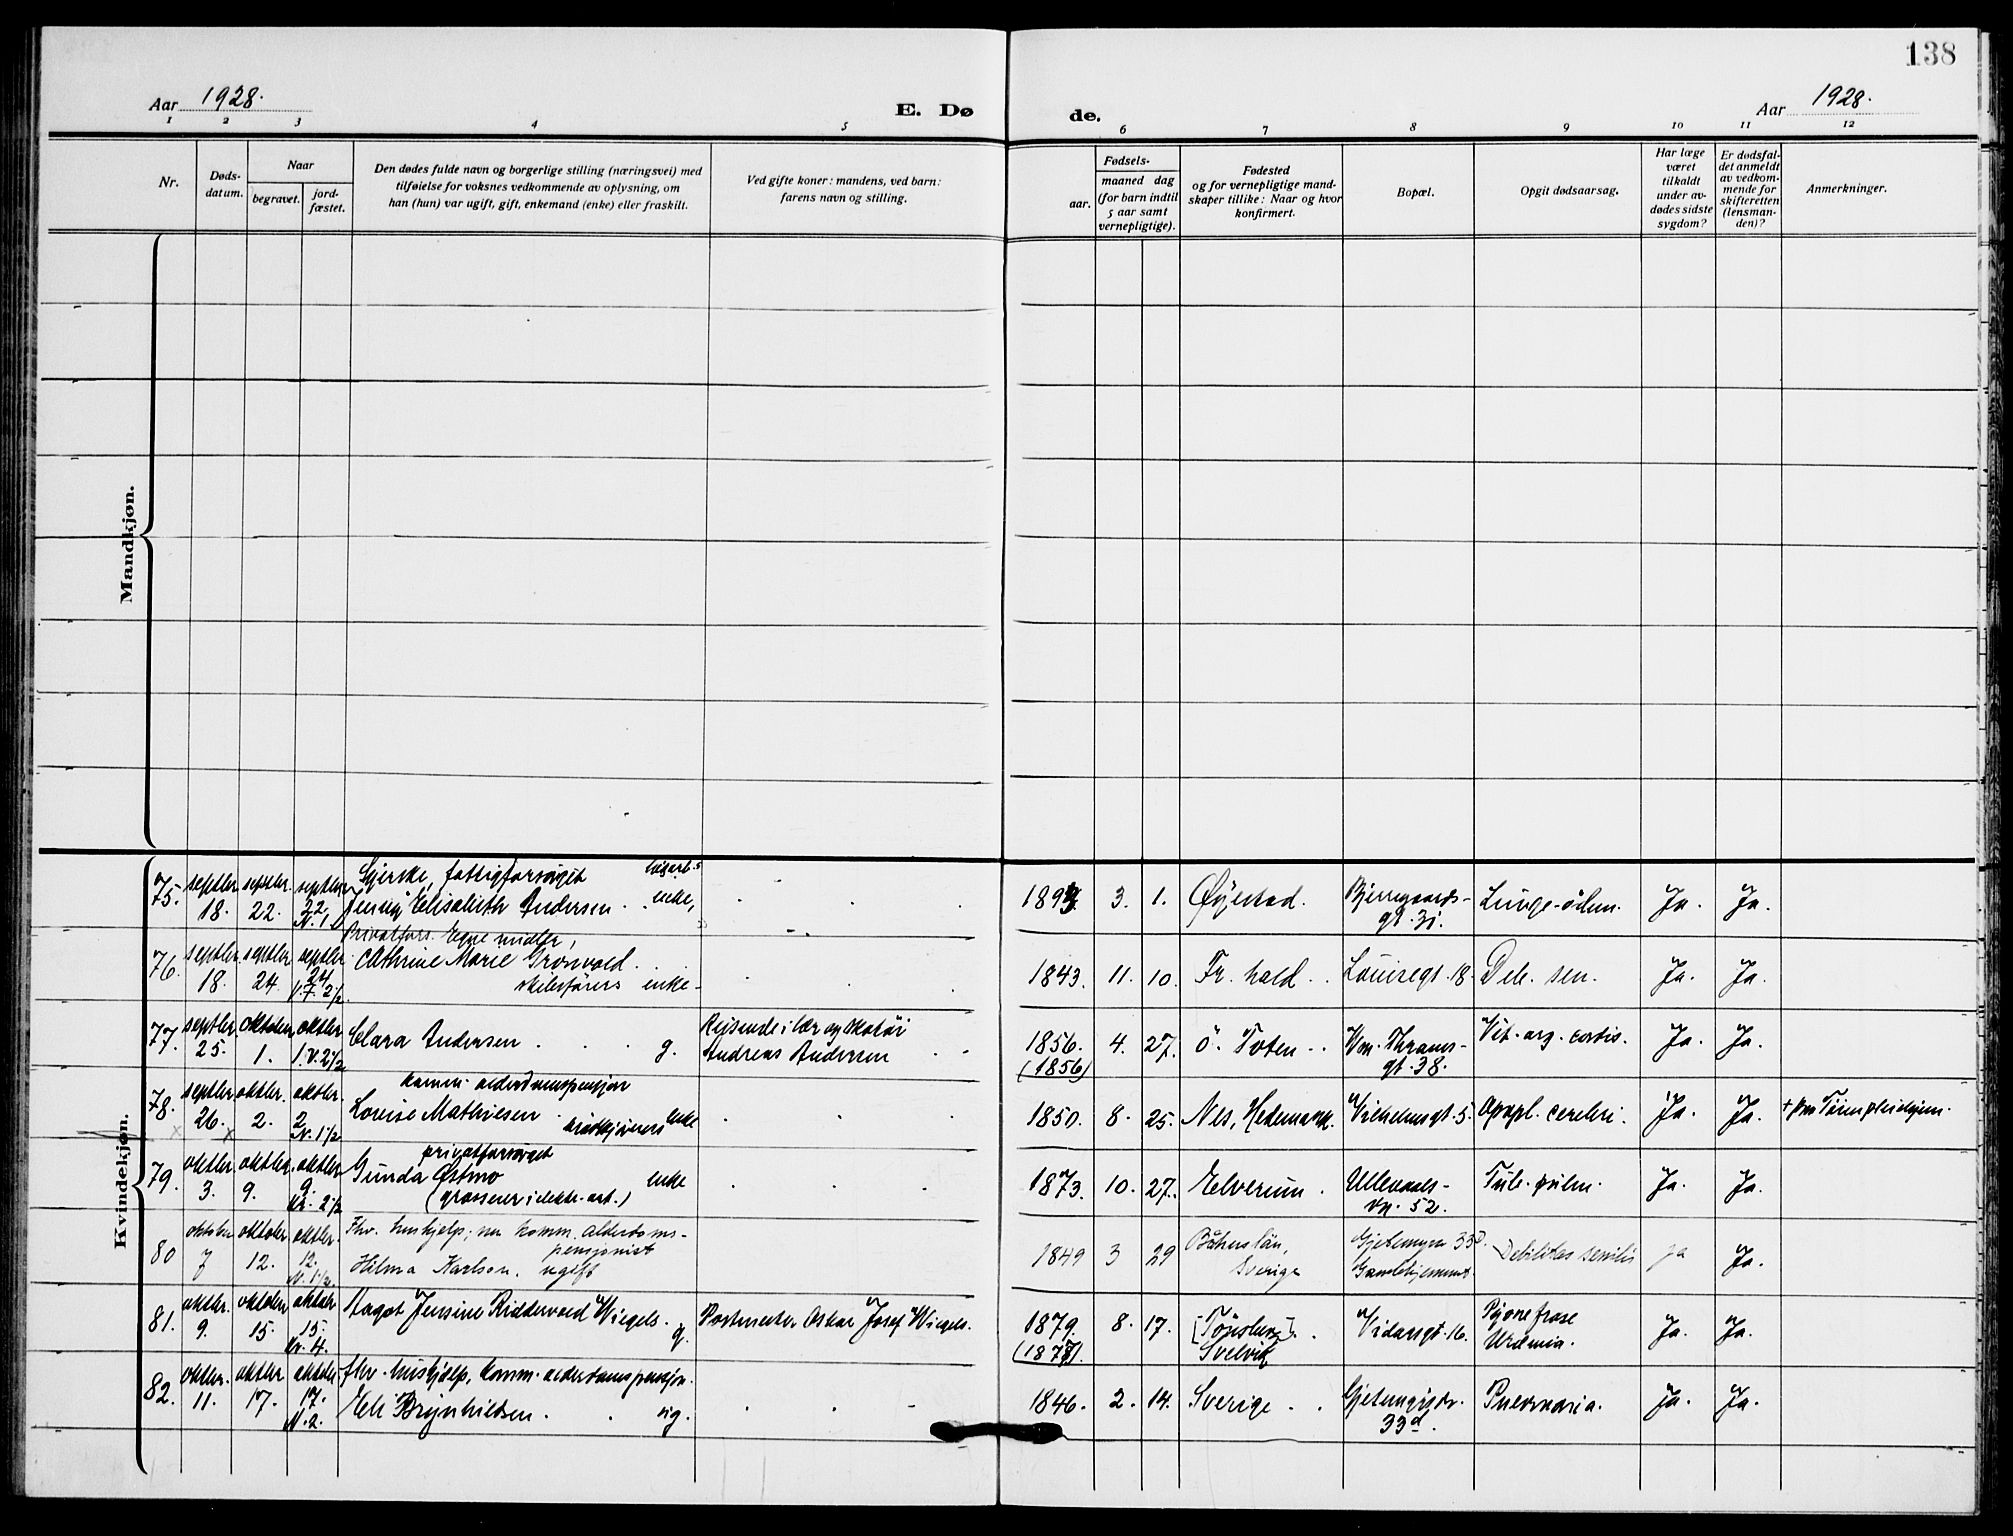 138
Aar 1928.
E. Dø
de.
Aar 1928.
1 2 3 4 5 6 7 8 9 10 11 12
Nr.
Døds-
datum.
Naar
begravet.
jord-
fæstet.
Den dødes fulde navn og borgerlige stilling (næringsvei) med
tilføielse for voksnes vedkommende av oplysning, om
han (hun) var ugift, gift, enkemand (enke) eller fraskilt.
Ved gifte koner: mandens, ved barn:
farens navn og stilling.
Fødsels-
aar.
maaned dag
(for barn indtil
5 aar samt
vernepligtige).
Fødested
og for vernepligtige mand-
skaper tillike: Naar og hvor
konfirmert.
Bopæl.
Opgit dødsaarsag.
Har læge
været
tilkaldt
under av-
dødes sidste
sygdom?
Er dødsfal-
det anmeldt
av vedkom-
mende for
skifteretten
(lensman-
den)?
Anmerkninger.
Mandkjøn.
Kvindekjøn.
75. septbr. 18. septbr. 22. septbr. 22. N. 1
fattigforsørget
Jenny Elisabeth Andersen enke,
3. 1. Øyestad. Bjerregaards-
gt. 31. Ja. Ja.
76. septbr. 18. septbr. 24. septbr. 24. V.F. 2½
Privatfors. Egne midler,
Cathrine Marie Grønvold.
skibsførers enke
1843. 11. 10. Fr. hald. Louisegt. 18. Deb. sen. Ja. Ja.
77. septbr. 25. oktober 1. oktbr. 1. V. 2½
Clara Andersen g.
Reisende i lær og skotøi
Andreas Andersen
1856.
(1856) 4. 27. Ö. Toten Wm. Thranes-
gt. 38. Vit. org. cordis. Ja. Ja.
78. septbr. 26. oktbr. 2. oktbr. 2. N. 1½
komm. alderdomspensjon
Louise Mathiesen enke
1850. 8. 25. Nes, Hedemark. Vilhelmsgt. 5. Apopl. cerebri. Ja. Ja.
79. oktbr. 3. oktbr. 9. oktbr. 9. Kr. 2½
privatforsørget
Gunda Østmo enke
(grosserer i elektr. art.)
1873. 10. 27. Elverum. Ullevaals-
vn. 52. Tub. pulm. Ja. Ja.
80 oktober 7 oktober 12. oktbr. 12. N. 1½.
Fhv. hushjelp; nu komm. alderdoms-
pensjonist
Hilma Karlson. ugift
1849 3 29 Båhuslän,
Sverige Gjetemyrsv. 33d.
Gamlehjemmet. Debilitas senilis ja Ja.
81. oktbr. 9. oktober 15. oktober 15. Kr. 4.
Aagot Jensine Riddervold Wiegels. g.
Postmester Oskar Josef Wiegels.
1879.
(1877). 8. 17. [Tönsberg].
Svelvik Vidarsgt. 16. Pyonefrose
Urämia. Ja. Ja.
82. oktbr. 11. oktbr 17. oktober 17. N. 2.
fhv. hushjelp, komm. alderdomspensjon.
Eli Brynhildsen. ug.
1846. 2. 14. Sverige Gjetemyrsv.
33d. Pneumonia. Ja. Ja.